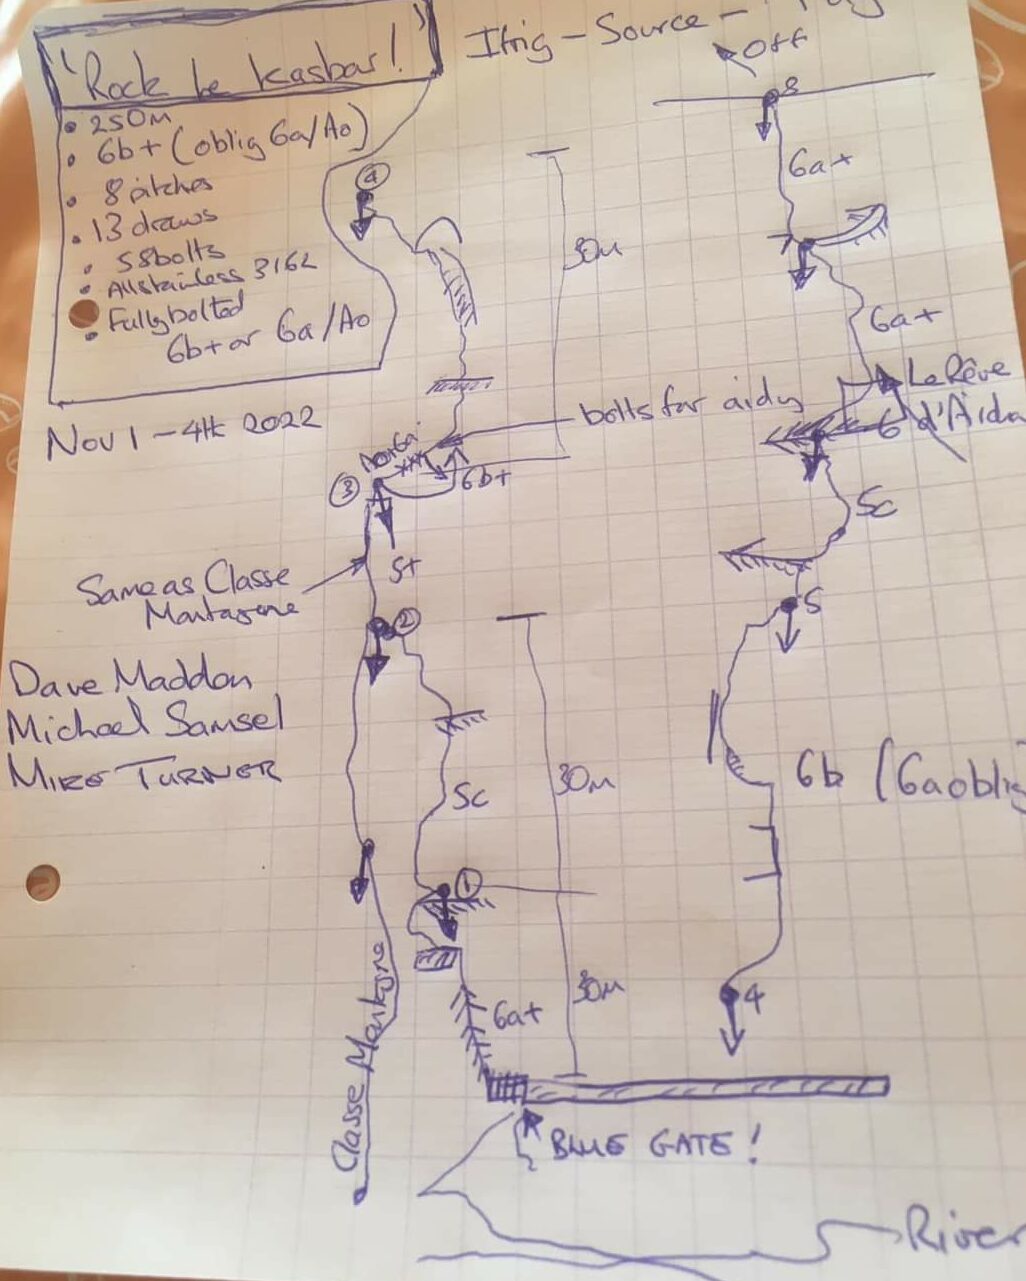 'Rock le Kasbar!'
Ifrig - Source -
• 250M
• 6b+ (oblig 6a/A0)
• 8 pitches
• 13 draws
• 58 bolts
• All stainless 316L
• Fully bolted
6b+ or 6a/A0
Nov 1 - 4th 2022
Off
8
6a+
6a+
Le Rêve
d'Aida
6
5c
5
6b (6a oblig
4
4
50m
bolts for aiding
6b+
3
5+
Same as Classe
Montagne
2
Dave Maddon
Michael Samsel
MIKE TURNER
5c
30m
1
30m
6a+
Classe Montagne
BLUE GATE!
River